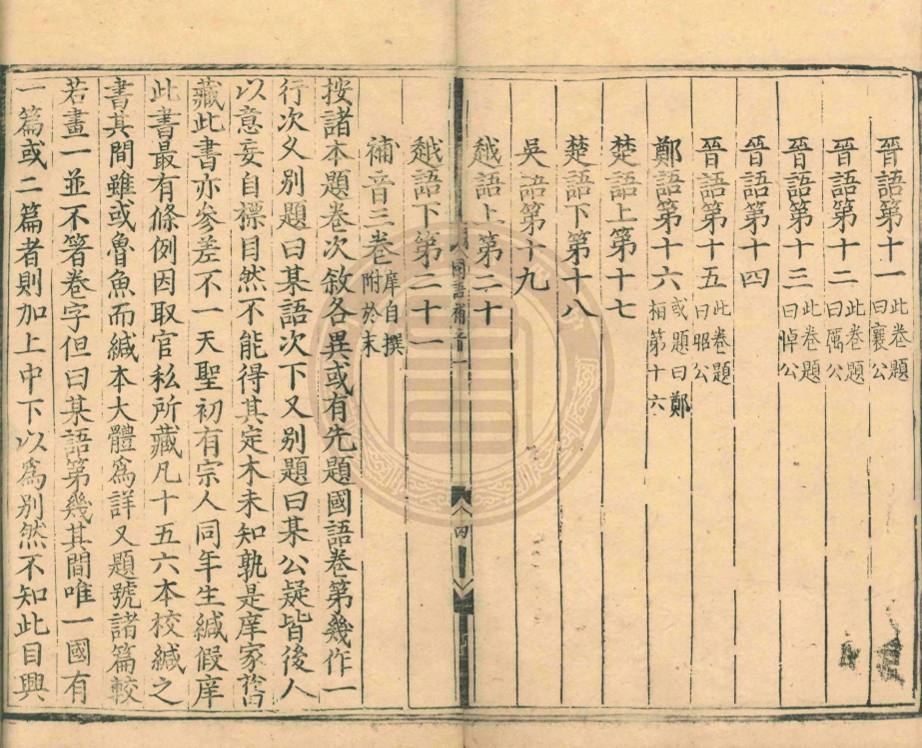 晉語第十一 此卷題曰襄公
晉語第十二 此卷題曰厲公
晉語第十三 此卷題曰悼公
晉語第十四
晉語第十五 此卷題曰昭公
鄭語第十六 或題曰鄭相第十六
楚語上第十七
楚語下第十八
吳語第十九
越語上第二十
越語下第二十一
補音三卷 庠自撰附於末
國語補音一
四
按諸本題卷次敘各異或有先題國語卷第幾作一
行次又別題曰某語次下又別題曰某公疑皆後人
以意妄自標目然不能得其定本未知孰是庠家舊
藏此書亦參差不一天聖初有宗人同年生緘假庠
此書最有條例因取官私所藏凡十五六本校緘之
書其間雖或魯魚而緘本大體爲詳又題號諸篇較
若畫一並不箸卷字但曰某語第幾其間唯一國有
一篇或二篇者則加上中下以爲別然不知此目興